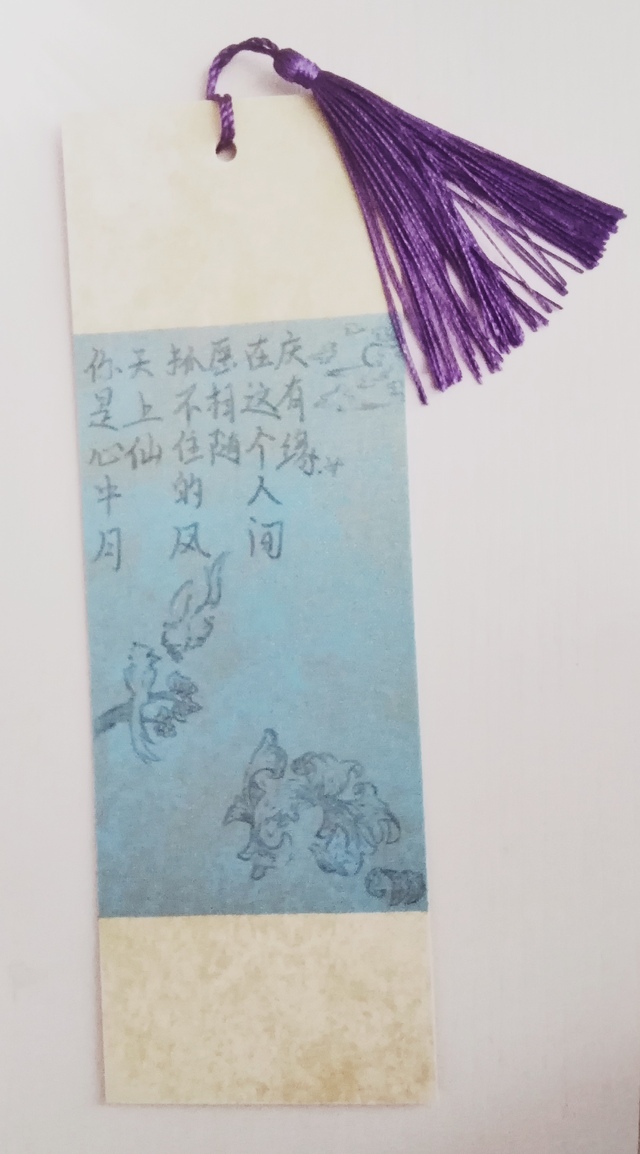 你是心中月
天上仙
抓不住的风
愿相随
在这个人间
庆有缘